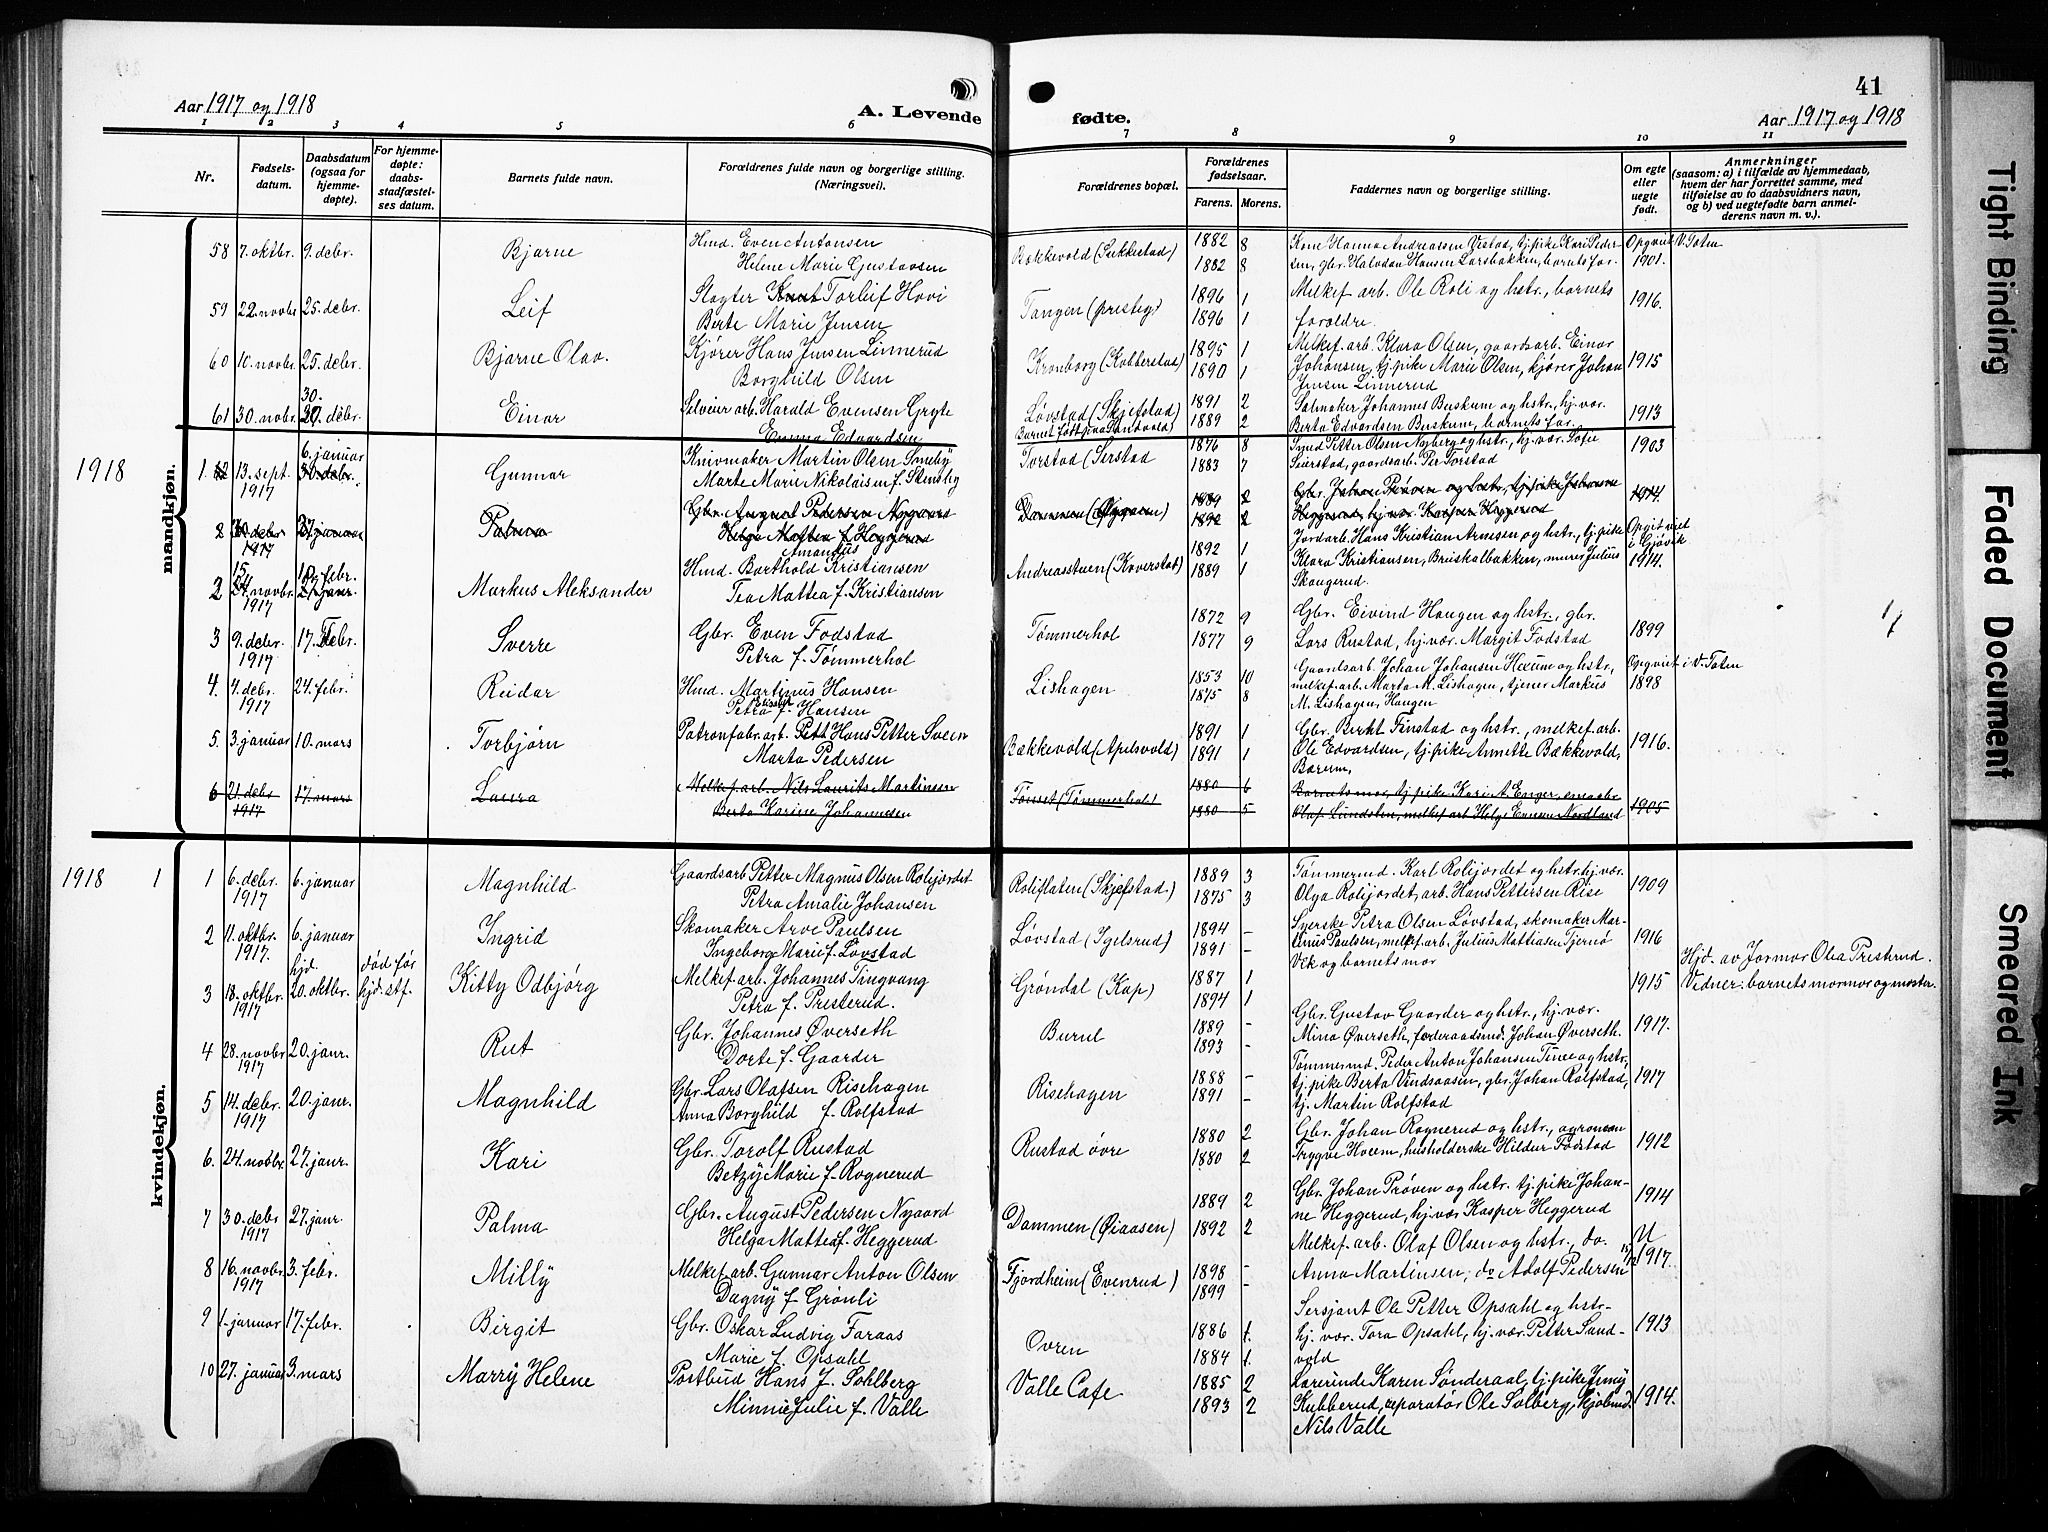 41
Aar 1917 og 1918
A. Levende
fødte.
Aar 1917 og 1918
1 2 3 4 5 6 7 8 9 10 11
Nr.
Fødsels-
datum.
Daabsdatum
(ogsaa for
hjemme-
døpte).
For hjemme-
døpte:
daabs-
stadfæstel-
ses datum.
Barnets fulde navn.
Forældrenes fulde navn og borgerlige stilling.
(Næringsvei).
Forældrenes bopæl.
Forældrenes
fødselsaar.
Farens. Morens.
Faddernes navn og borgerlige stilling.
Om egte
eller
uegte
født.
Anmerkninger
(saasom: a) i tilfælde av hjemmedaab,
hvem der har forrettet samme, med
tilføielse av to daabsvidners navn,
og b) ved uegtefødte barn anmel-
derens navn m. v.).
mandkjøn.
58 7. oktbr. 9. debr. Bjarne
Hmd. Even Antonsen
Helene Marie Gustavsen
Bækkevold (Sukkestad)
1882 8
1882 8
Kone Hanna Andreassen Vestad, tj. pike Kari Peder-
sen, gbr. Halvdan Hansen Larsbakken, barnets far.
Opgviet V. Toten
1901.
59 22. novbr 25. debr. Leif
Slagter Knut Torleif Hovi
Berte Marie Jensen
Tangen (Presteg)
1896 1
1896 1
Melkef. arb. Ole Roli og hstr., barnets
forældre.
1916.
60 10. novbr. 25. debr. Bjarne Olav.
Kjører Hans Jensen Linnerud
Borghild Olsen
Kronborg (Kobberstad)
1895 1
1890 1
Melkef. arb. Klara Olsen, gaardsarb. Einar
Johansen, tj. pike Marie Olsen, kjører Johan
Jensen Linnerud
1915
30.
61 30. nobr. debr. Einar
Selveier arb. Harald Evensen Gryte
Emma Edvardsen
Løvstad (Skjefstad)
Barnet født paa Sandvold)
1891 2
1889 2
Salmaker Johannes Buskum og hstr., hj. vær.
Berta Edvardsen Buskum, barnets far.
1913
1918
1. 13. sept. 1917 6. januar 30. debr. Gunnar
Knivmaker Martin Olsen Smeby
Marte Marie Nikolaisen f. Stensby
Torstad (Serstad
1876 8
1883 7
Smed Petter Olsen Nyberg og hstr., hj. vær. Sofie
Seierstad, gaardsarb. Per Torstad
1903
2 30 debr 1917 27. januar Palma
Gbr. August Pedersen Nygaard
Helga Mattea f. Heggerud
Dammen (Øiaasen)
1889 2
1892 2
Gbr. Johan Prøven og hstr., tj. pike Johanne
Heggerud, hj. vær. Kasper Heggerud
1914.
2 15. novbr. 1917 10. febr. Markus Aleksander
Amandus
Hmd. Barthold Kristiansen
Tea Mattea f. Kristiansen
Andreasstuen (Koverstad)
1892 1
1889 1
Jordarb. Hans Kristian Arnesen og hstr., tj. pike
Klara Kristiansen, Bruiskalbakken, murer Julius
Skaugerud.
Opgit viet
i Gjøvik
1914.
3 9. debr. 1917 17. febr. Sverre
Gbr. Even Fodstad
Petra f. Tømmerhol
Tømmerhol
1872 9
1877 9
Gbr. Eivind Haugen og hstr., gbr.
Lars Rustad, hj. vær. Margit Fodstad
1899
4. 4. debr. 1917 24. febr. Reidar
Hmd. Martinus Hansen
Petra f. Hansen
Lishagen
1853 10
1875 8
Gaardsarb. Johan Johansen Hexum og hstr.,
melkef. arb. Marta M. Lishagen, tjener Markus
M. Lishagen, Haugen
Opgviet i V. Toten
1898
5. 3. januar 10. mars Torbjørn
Patronfabr. arb. Pett Hans Petter Sveen
Marta Pedersen
Bækkevold (Apelsvold)
1891 1
1891 1
Gbr. Berkt Finstad og hstr., melkef. arb.
Ole Edvardsen, tj. pike Annette Bækkevold,
Bærum,
1916.
6 21. debr 1917 17. mars Laura
Melkef. arb. Nils Laurits Martinsen
Berta Karine Johannesen
Tønset (Tømmerhol)
1880 6
1880 5
Barnets mor, tj. pike Kari A. Enger, emaabr
Olaf Lundsten, melkef. arb Helge Evensen Nordland
1905
kvindekjøn.
1918 1
1 6. debr. 1917 6. januar Magnhild
Gaardsarb Petter Magnus Olsen Rolijordet
Petra Amalie Johansen
Roliflaten (Skjefstad)
1889 3
1875 3
Tømmermd. Karl Rolijordet og hstr. hj. vær.
Olga Rolijordet, arb. Hans Pettersen Rise
1909
2 11. oktbr. 1917. 6. januar Ingrid
Skomaker Arve Paulsen
Ingeborg Marie f. Løvstad
Løvstad (Igelsrud)
1894 -
1891 -
Syerske Petra Olsen Løvstad, skomaker Mar-
tinus Paulsen, melkef. arb. Julius Mattiasen Tjernø
Vik og barnets mor
1916
3 18. oktbr. 1917 hjd. 20. oktbr. død før hjd. stf. Kitty Odbjørg
Melkef. arb. Johannes Tingvang
Petra f. Presterud.
Grøndal (Kap)
1887 1
1894 1
1915
Hjd. av Jormor Olea Presterud.
Vidner: barnets mormor og moster.
4 28. novbr 1917 20. janr. Rut
Gbr. Johannes Øverseth
Dorte f. Gaarder
Burul
1889 -
1893 -
Gbr. Gustav Gaarder og hstr., hj. vær.
Mina Øverseth, føderaadsmd. Johan Øverseth.
1917.
5 14. debr. 1917 20. janr. Magnhild
Gbr. Lars Olafsen Risehagen
Anna Borghild f. Rolfstad
Risehagen
1888 -
1891 -
Tømmermd. Peder Anton Johansen Tinee og hstr.,
tj. pike Berta Vindsaasen, gbr. Johan Rolfstad,
tj. Martin Rolfstad
1917
6. 24. nobbr 27. janr. Kari
Gbr. Torolf Rustad
Betzy Marie f. Rognerud
Rustad øvre
1880 2
1880 2
Gbr. Johan Rognerud og hstr., agronom
Trygve Hveem, husholderske Hildur Fodstad
1912
7 30. debr 1917 27. janr. Palma
Gbr. August Pedersen Nygaard
Helga Mattea f. Heggerud
Dammen (Øiaasen)
1889 2
1892 2
Gbr. Johan Prøven og hstr. tj. pike Johan-
ne Heggerud, hj. vær Kasper Heggerud
1914
8 16. novbr. 1917 3. febr. Milly
Melkef. arb. Gunnar Anton Olsen
Dagny f. Grønli
Fjordheim (Evenrud)
1898 -
1899 -
Melkef. arb. Olaf Olsen og hstr., do.
Anna Martinsen, do Adolf Pedersen
U
15/12 1917.
9 1. januar 17. febr. Birgit
Gbr. Oskar Ludvig Faraas
Marie f. Opsahl
Ovren
1886 1.
1884 1.
Sersjant Ole Petter Opsahl og hstr-
hj. vær. Tora Opsahl, hj. vær. Petter Sand-
vold
1913
10 27. januar 3. mars Marry Helene
Postbud Hans J. Sohlberg
Minnie Julie f. Valle
Valle Cafe
1885 2
1893 2
Lærerinde Karen Sønderaal, tj. pike Jenny
Kubberud, reparatør Ole Solberg, Mjølnud.
Nils Valle
1914.
Tight Binding
Faded Document
Smeared Ink